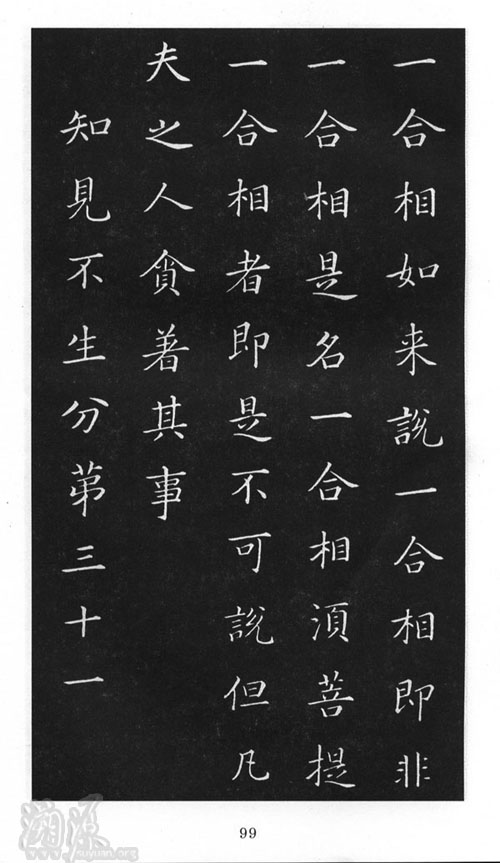 一合相如来說一合相即非
一合相是名一合相湏菩提
一合相者即是不可說但凡
夫之人貪著其事
知見不生分苐三十一
溯源
www.suyuan.org
99